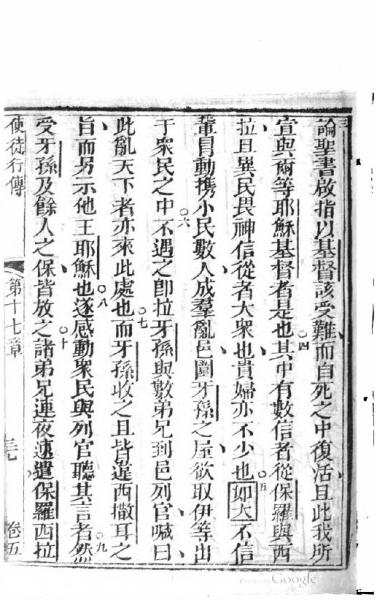 論聖書啟指以基督該受難而自死之中復活且此我所
宣與爾等耶穌基督者是也其中有數信者從保羅與西
拉且異民畏神信從者大衆也貴婦亦不少也如大不信
輩自動携小民數人成羣亂邑圍牙孫之屋欲取伊等出
于衆民之中不遇之卽拉牙孫與數弟兄到邑列官喊曰
此亂天下者亦來此處也而牙孫收之且皆違西撒耳之
旨而另示他王耶穌也遂感動衆民與列官聽其言者然
受牙孫及餘人之保皆放之諸弟兄連夜遞遺保羅西拉
使徒行傳
第十七章
三七
卷五
四
五
六
七
八
九
十
Google